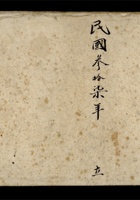 民國叁拾柒年
立